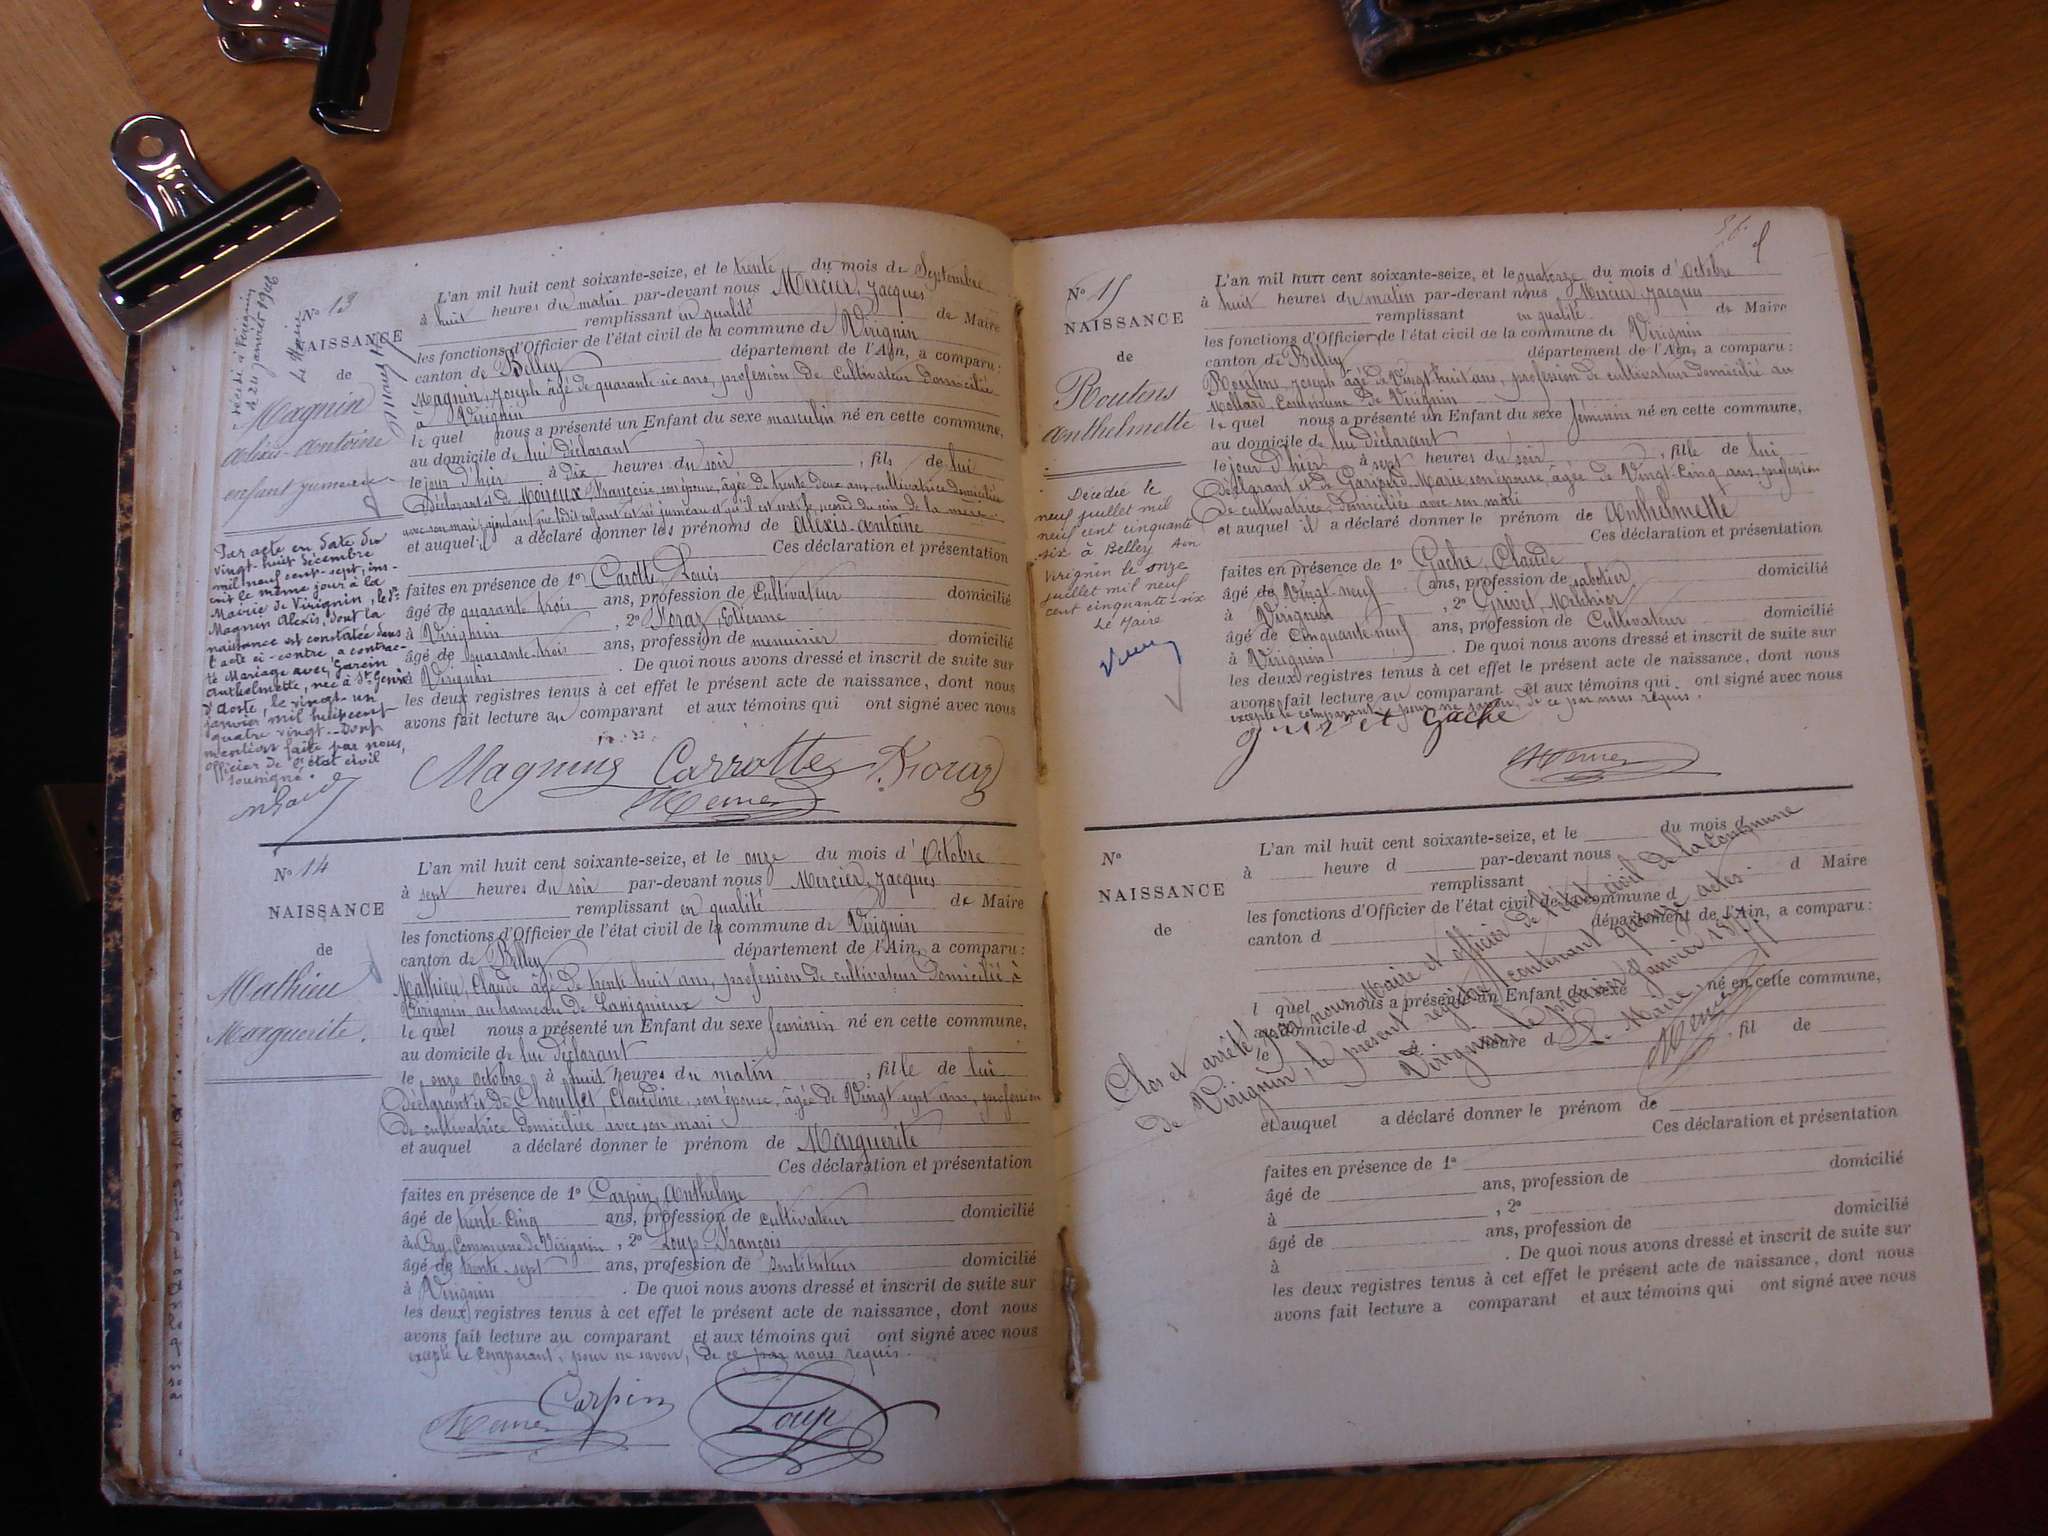 N° 13
NAISSANCE
de
Magnin
Alexis-Antoine
enfant jumeau
Décédé à Virignin
le 24 janvier 1946
Le Maire
Par acte en date du
vingt-huit décembre
mil neuf cent-sept, ins-
crit le même jour à la
Mairie de Virignin, le Sr
Magnin Alexis, dont la
naissance est constatée dans
l'acte ci-contre, a contrac-
té Mariage avec Garcin
Anthelmette, née à St Genix
d'Aoste, le vingt-un
janvier mil huit cent
quatre vingt. Dont
mention faite par nous,
officier de l'état civil
soussigné.
L'an mil huit cent soixante-seize, et le trente du mois de Septembre
à huit heures du matin par-devant nous Mercier, Jacques
remplissant en qualité de Maire
les fonctions d'Officier de l'état civil de la commune de Virignin
canton de Belley département de l'Ain, a comparu:
Magnin, Joseph âgé de quarante-six ans, profession de cultivateur domicilié
à Virignin
le quel nous a présenté un Enfant du sexe masculin né en cette commune,
au domicile de lui déclarant
le jour d'hier à dix heures du soir, fils de lui
Déclarant et de Moiroux Françoise, son épouse, âgée de trente deux ans, cultivatrice domiciliée
avec son mari, ajoutant que ledit enfant est né jumeau et qu'il est sorti le second du sein de la mère
et auquel il a déclaré donner les prénoms de Alexis-Antoine
Ces déclaration et présentation
faites en présence de 1° Carotte, Louis
âgé de quarante trois ans, profession de Cultivateur domicilié
à Virignin, 2° Étienne
âgé de quarante-trois ans, profession de menuisier domicilié
à Virignin. De quoi nous avons dressé et inscrit de suite sur
les deux registres tenus à cet effet le présent acte de naissance, dont nous
avons fait lecture au comparant et aux témoins qui ont signé avec nous
Magnin Carrotte
Mercier
N° 14
NAISSANCE
de
Mathieu
Marguerite.
L'an mil huit cent soixante-seize, et le onze du mois d'Octobre
à sept heures du soir par-devant nous Mercier, Jacques
remplissant en qualité de Maire
les fonctions d'Officier de l'état civil de la commune de Virignin
canton de Belley département de l'Ain, a comparu:
Mathieu, Claude âgé de trente huit ans, profession de cultivateur domicilié à
Virignin, au hameau de
le quel nous a présenté un Enfant du sexe feminin né en cette commune,
au domicile de lui déclarant
le onze octobre à huit heures du matin, fille de lui
Déclarant et de Choullet, Claudine, son épouse, âgée de Vingt sept ans, profession
de cultivatrice domiciliée avec son mari
et auquel a déclaré donner le prénom de Marguerite
Ces déclaration et présentation
faites en présence de 1° Carpin, Anthelme
âgé de trente-cinq ans, profession de cultivateur domicilié
Commune de Virignin, 2° Loup François
âgé de trente-sept ans, profession de Instituteur domicilié
à Virignin. De quoi nous avons dressé et inscrit de suite sur
les deux registres tenus à cet effet le présent acte de naissance, dont nous
avons fait lecture au comparant et aux témoins qui ont signé avec nous
excepté le comparant, pour ne savoir, de ce par nous requis.
Carpin
Mercier Loup
N° 15
NAISSANCE
de
Routens
Anthelmette
Décédée le
neuf juillet mil
neuf cent cinquante
six à Belley Ain
Virignin le onze
juillet mil neuf
cent cinquante-six
Le Maire
L'an mil huit cent soixante-seize, et le quatorze du mois d'Octobre
à huit heures du matin par-devant nous Mercier Jacques
remplissant en qualité de Maire
les fonctions d'Officier de l'état civil de la commune de Virignin
canton de Belley département de l'Ain, a comparu:
Routens, Joseph âgé de Vingt huit ans, profession de cultivateur domicilié au
Mollard, Commune de Virignin
le quel nous a présenté un Enfant du sexe féminin né en cette commune,
au domicile de lui déclarant
le jour d'hier à sept heures du soir, fille de lui
Déclarant et de Marie, son épouse, âgée de Vingt-cinq ans, profession
de cultivatrice, domiciliée avec son mari
et auquel il a déclaré donner le prénom de Anthelmette
Ces déclaration et présentation
faites en présence de 1° Gache, Claude
âgé de Vingt neuf ans, profession de sabotier domicilié
à Virignin, 2° Grivet, Melchior
âgé de Cinquante-neuf ans, profession de Cultivateur domicilié
à Virignin. De quoi nous avons dressé et inscrit de suite sur
les deux registres tenus à cet effet le présent acte de naissance, dont nous
avons fait lecture au comparant et aux témoins qui ont signé avec nous
excepté le comparant, pour ne savoir, de ce par nous requis.
grivet Gache
Mercier
N°
NAISSANCE
de
L'an mil huit cent soixante-seize, et le du mois d
à heure d par-devant nous
remplissant d Maire
les fonctions d'Officier de l'état civil de la commune d
canton d département de l'Ain, a comparu:
l quel nous a présenté un Enfant du sexe né en cette commune,
au domicile d
le heure d, fil de
et auquel a déclaré donner le prénom de
Ces déclaration et présentation
faites en présence de 1° domicilié
âgé de ans, profession de
à , 2° domicilié
âgé de ans, profession de
à . De quoi nous avons dressé et inscrit de suite sur
les deux registres tenus à cet effet le présent acte de naissance, dont nous
avons fait lecture a comparant et aux témoins qui ont signé avec nous
Clos et arrêté par nous Maire et officier de l'état civil de la commune
de Virignin, le présent registre contenant quinze actes.
Virignin, le premier Janvier 1877.
Le Maire,
Mercier